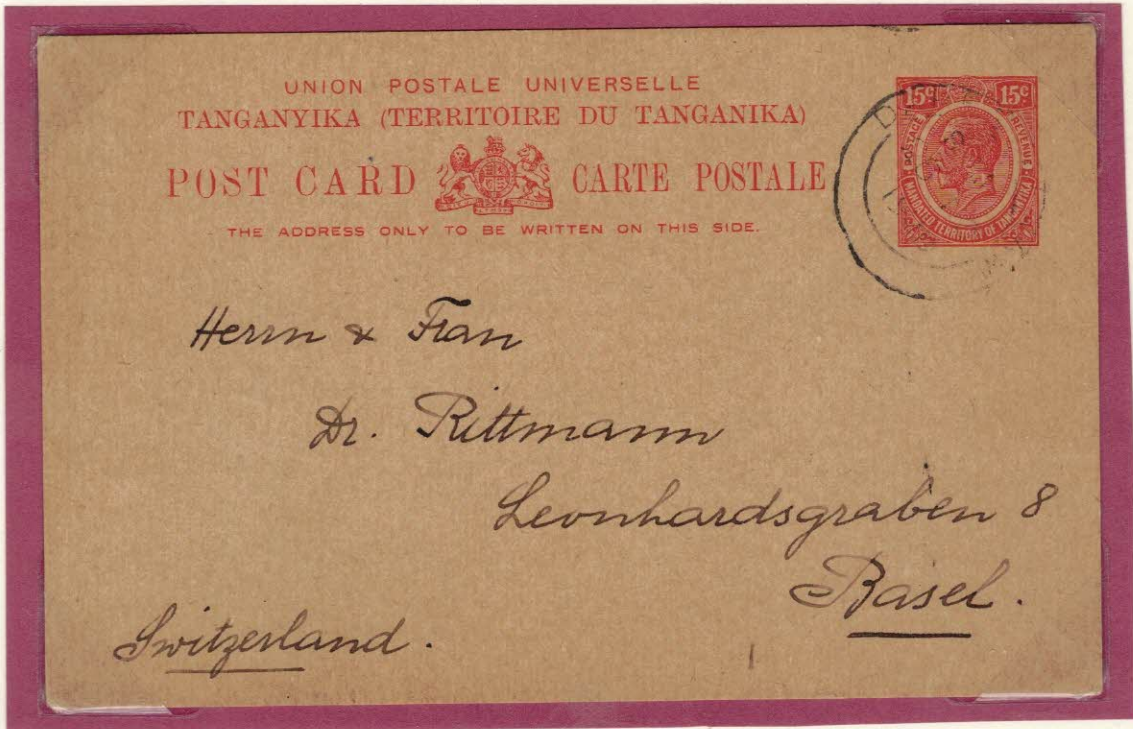 UNION POSTALE UNIVERSELLE
TANGANYIKA (TERRITOIRE DU TANGANIKA)
POST CARD CARTE POSTALE
THE ADDRESS ONLY TO BE WRITTEN ON THIS SIDE.
15c 15c
POSTAGE REVENUE
MANDATED TERRITORY OF TANGANYIKA
Herrn & Frau
Dr. Rittmann
Leonhardsgraben 8
Basel.
Switzerland.